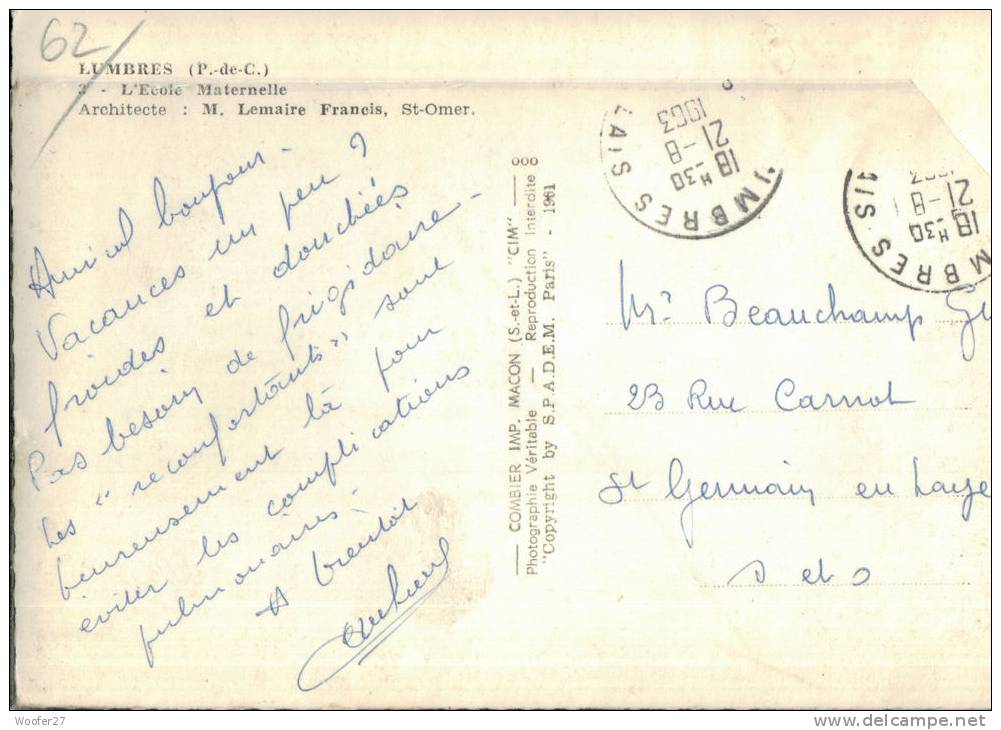 62
LUMBRES (P.-de-C.)
3 - L'Ecole Maternelle
Architecte : M. Lemaire Francis, St-Omer.
Amical bonjour -
Vacances un peu ?
froides et douchées
Pas besoin de frigidaire -
Les "reconfortants" sont
heureusement là pour
éviter les complications
pulmonaires -
A bientôt
COMBIER IMP. MACON (S.-et-L.) "CIM"
Photographie Véritable — Reproduction Interdite
"Copyright by S.P.A.D.E.M. Paris" - 1961
ooo
18 H30
21 -8
1963
UMBRES
LAIS
18 H30
21 -8
MBRES
AIS
Mr Beauchamp
23 Rue Carnot
St Germain en Laye
S et O
Woofer27
delcampe.net